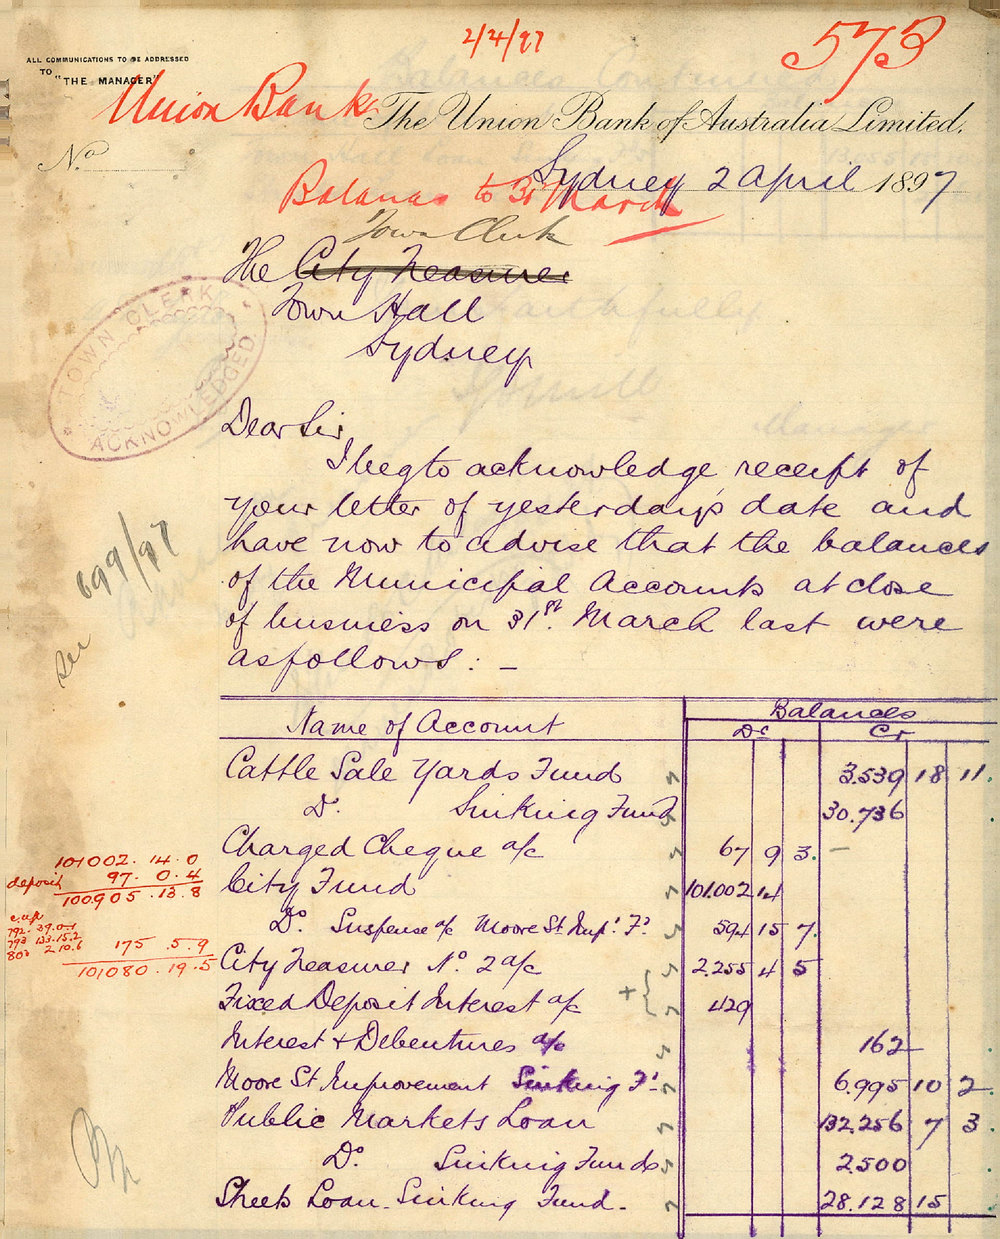 2/4/97
573
ALL COMMUNICATIONS TO BE ADDRESSED
TO "THE MANAGER"
Union Bank
The Union Bank of Australia Limited.
No
Sydney 2 April 1897
Balances to 31 March
Town Clerk
The City Treasurer
Town Hall
Sydney
TOWN CLERK
ACKNOWLEDGED.
Dear Sir,
I beg to acknowledge receipt of
your letter of yesterday's date and
have now to advise that the balances
of the Municipal Accounts at close
of business on 31st. March last were
as follows: –
See 699/97
Name of Account Balances
Dr Cr
Cattle Sale Yards Fund 3.539 18 11
Do. Sinking Fund 30.736
Charged Cheque a/c 67 9 3. –
City Fund 101.002 14
Do. Suspense a/c Moore St. Imp't F'd. 594 15 7.
City Treasurer No. 2 a/c 2.255 4 5
Fixed Deposit Interest a/c 429
Interest & Debentures a/c 162
Moore St Improvement Sinking Fd. 6.995 10 2
Public Markets Loan 132.256 7 3
Do. Sinking Funds 2500
Sheep Loan Sinking Fund. 28.128 15
101002. 14. 0
deposit 97. 0. 4
100905. 13. 8
792. 39.0.1
793 133.15.2
800 2.10.6
175. 5. 9
101080. 19. 5
+